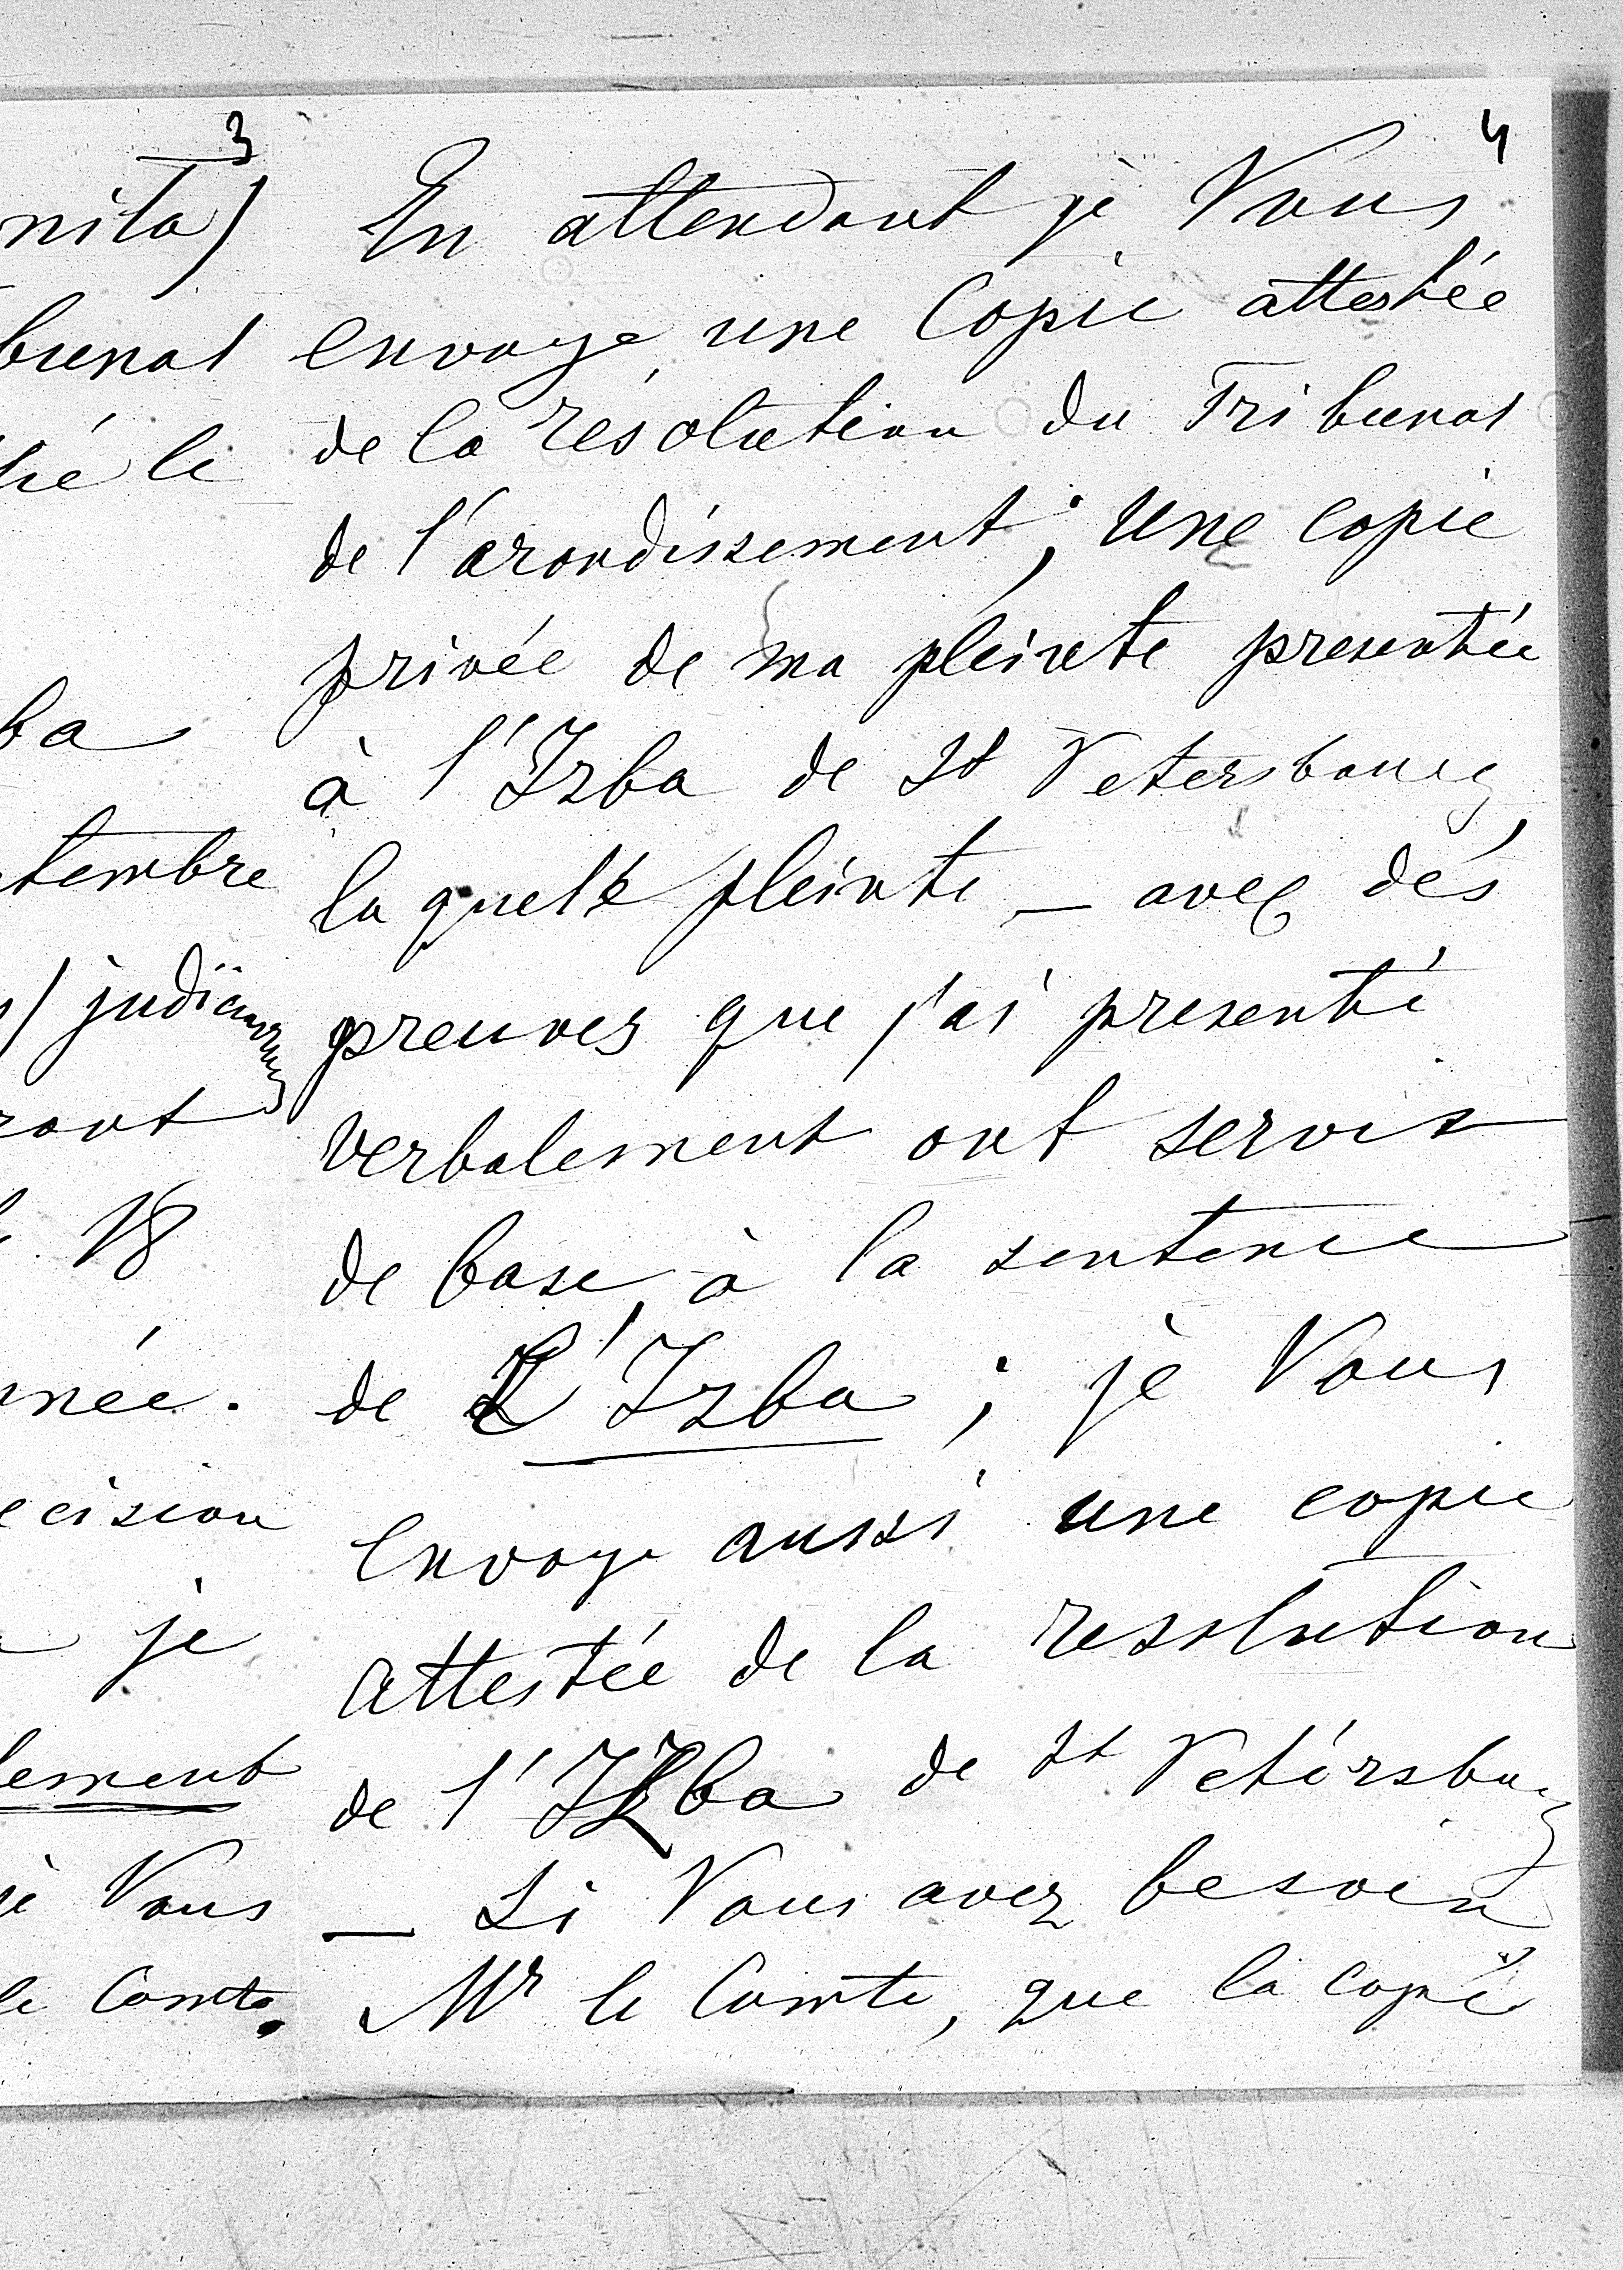 3
nita)
bunal
né le
ba
tembre
judiciaires
ront
18
née.
ecision
je
lement
Vous
le Comte.
4
En attendant je Vous
envoye une Copie attestée
de la résolution du Tribunal
de l'arondissement; Une copie
privée de ma pleinte presentée
à l'Izba de St Petersbourg,
la quelle pleinte — avec dés
preuves que j'ai presenté
verbalement ont servis
de base à la sentence
de L'Izba; je Vous
envoye aussi une copie
attestée de la resolution
de l'Izba de St Petérsburg
— Si Vous avez besoin
Mr le Comte, que la copie